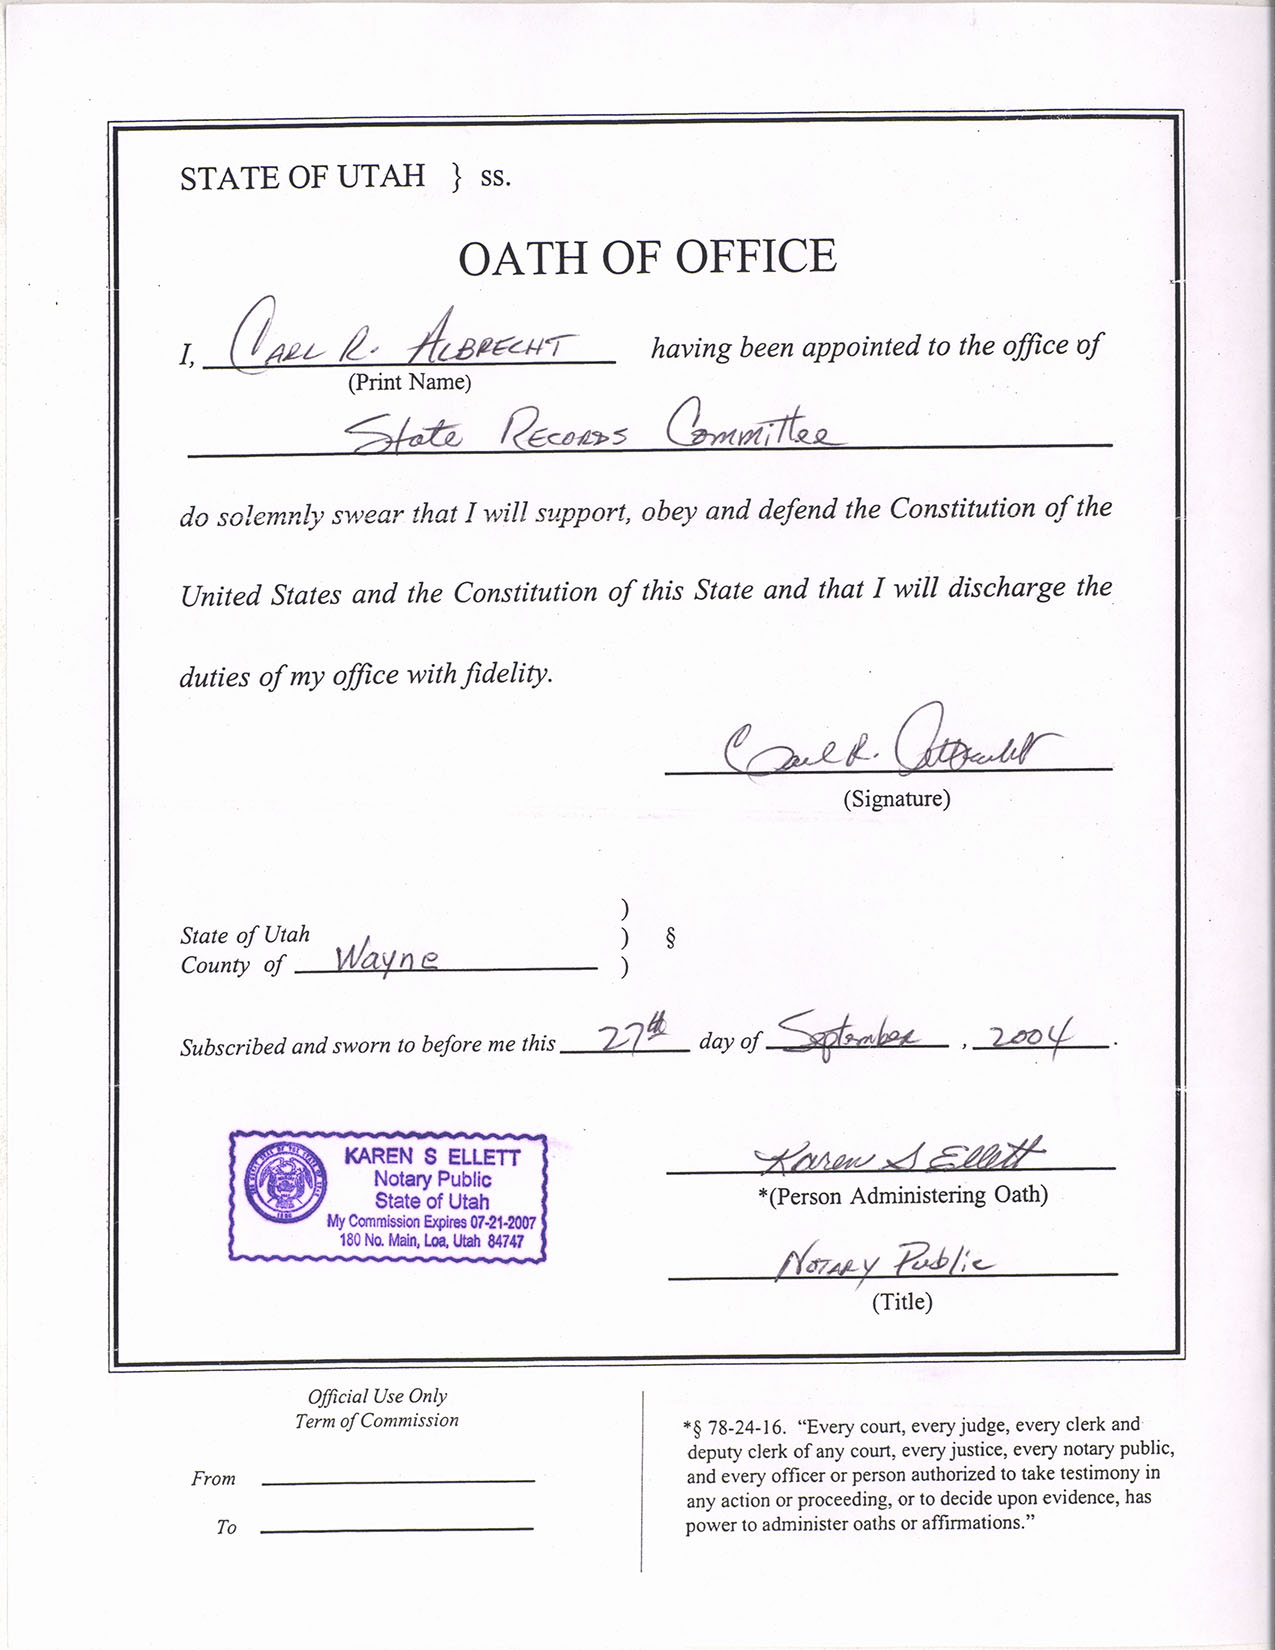 STATE OF UTAH } ss.
OATH OF OFFICE
I, CARL R. ALBRECHT having been appointed to the office of
(Print Name)
State RECORDS Committee
do solemnly swear that I will support, obey and defend the Constitution of the
United States and the Constitution of this State and that I will discharge the
duties of my office with fidelity.
Carl R. Albrecht
(Signature)
)
State of Utah ) §
County of Wayne )
Subscribed and sworn to before me this 27th day of September, 2004.
KAREN S ELLETT
Notary Public
State of Utah
My Commission Expires 07-21-2007
180 No. Main, Loa, Utah 84747
Karen S Ellett
*(Person Administering Oath)
NOTARY Public
(Title)
Official Use Only
Term of Commission
From
To
*§ 78-24-16. “Every court, every judge, every clerk and
deputy clerk of any court, every justice, every notary public,
and every officer or person authorized to take testimony in
any action or proceeding, or to decide upon evidence, has
power to administer oaths or affirmations.”